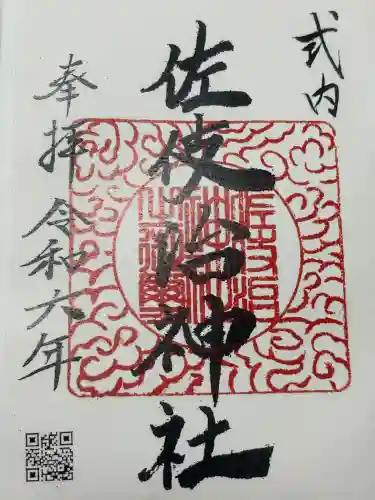 式内
佐使治神社
奉拝 令和六年